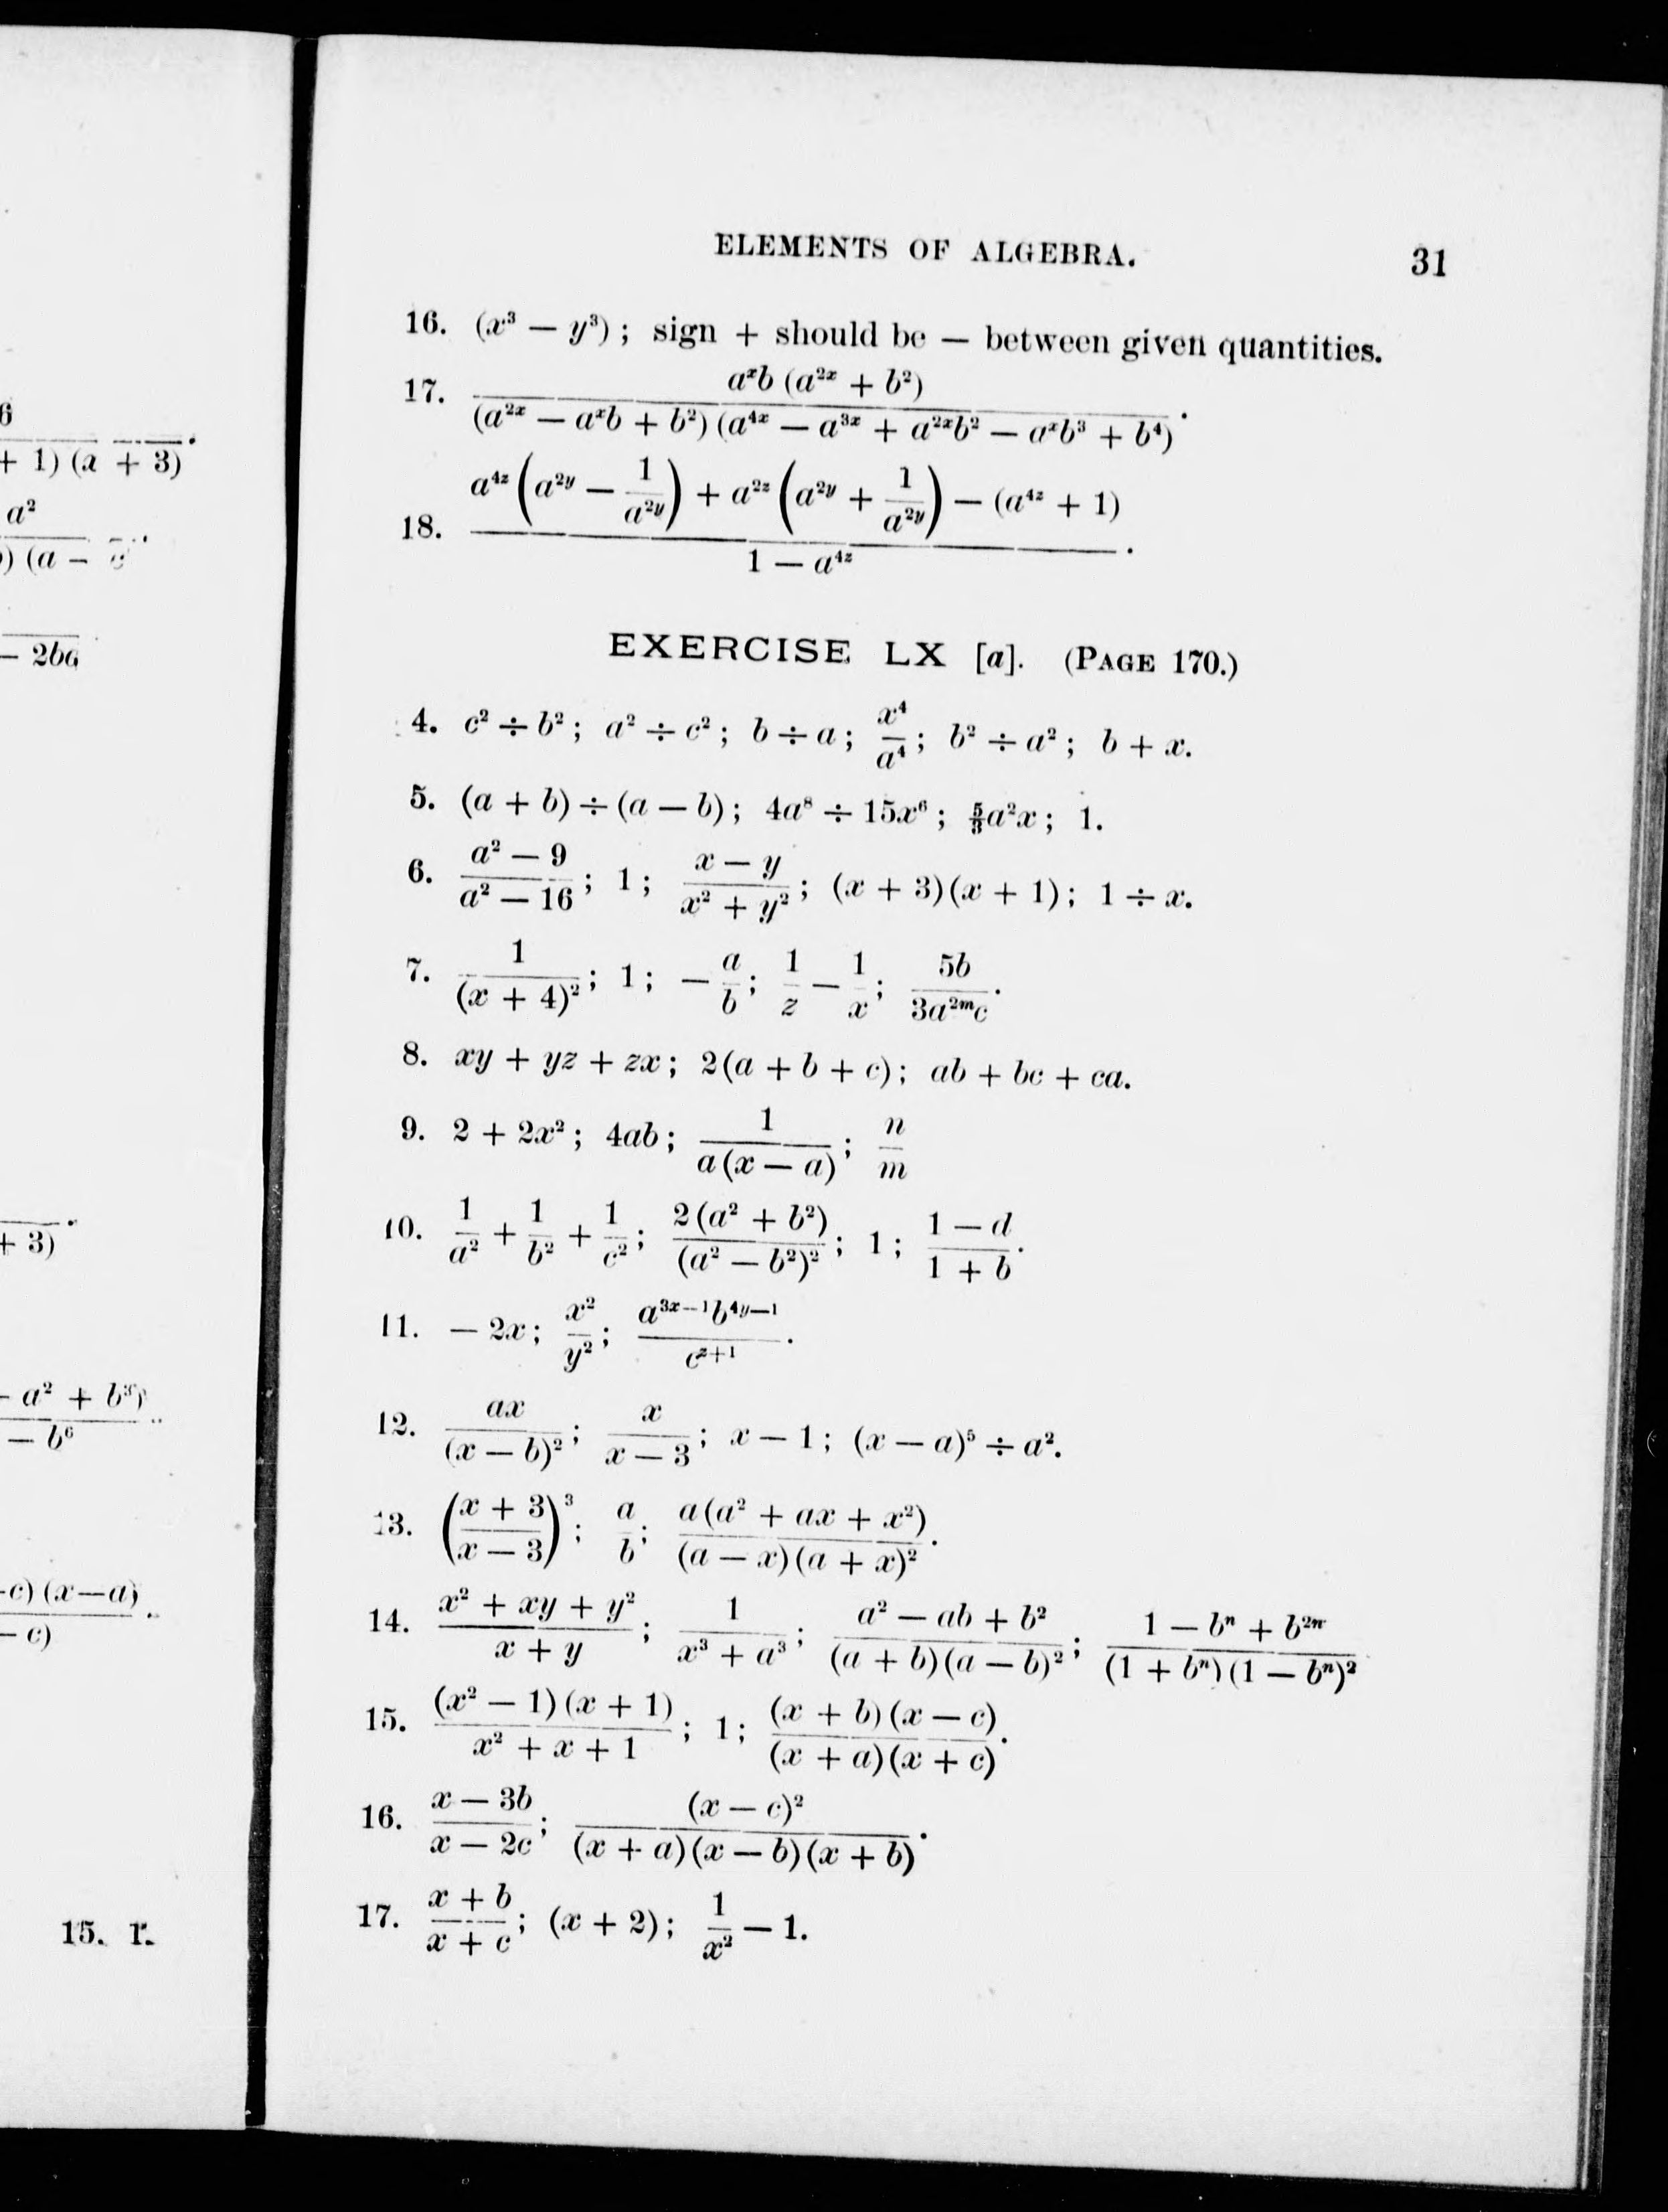 6
+ 1) (a + 3).
a²
) (a –
– 2ba
+ 3).
- a² + b³)
– b⁶
-c) (x—a).
– c)
15. 1.
ELEMENTS OF ALGEBRA. 31
16. (x³ — y³) ; sign + should be — between given quantities.
17. aˣb (a²ˣ + b²) / (a²ˣ — aˣb + b²) (a⁴ˣ — a³ˣ + a²ˣb² — aˣb³ + b⁴).
18. a⁴ᶻ (a²ʸ — 1/a²ʸ) + a²ᶻ (a²ʸ + 1/a²ʸ) — (a⁴ᶻ + 1) / 1 — a⁴ᶻ.
EXERCISE LX [a]. (PAGE 170.)
4. c² ÷ b² ; a² ÷ c² ; b ÷ a ; x⁴/a⁴ ; b² ÷ a² ; b + x.
5. (a + b) ÷ (a — b) ; 4a⁸ ÷ 15x⁶ ; 5/3 a²x ; 1.
6. a² — 9 / a² — 16 ; 1 ; x — y / x² + y² ; (x + 3)(x + 1) ; 1 ÷ x.
7. 1 / (x + 4)² ; 1 ; — a/b ; 1/z — 1/x ; 5b / 3a²ᵐc.
8. xy + yz + zx ; 2(a + b + c) ; ab + bc + ca.
9. 2 + 2x² ; 4ab ; 1 / a(x — a) ; n/m
10. 1/a² + 1/b² + 1/c² ; 2(a² + b²) / (a² — b²)² ; 1 ; 1 — d / 1 + b.
11. — 2x ; x²/y² ; a³ˣ⁻¹b⁴ʸ⁻¹ / cᶻ⁺¹.
12. ax / (x — b)² ; x / x — 3 ; x — 1 ; (x — a)⁵ ÷ a².
13. (x + 3 / x — 3)³ ; a/b ; a(a² + ax + x²) / (a — x)(a + x)².
14. x² + xy + y² / x + y ; 1 / x³ + a³ ; a² — ab + b² / (a + b)(a — b)² ; 1 — bⁿ + b²ⁿ / (1 + bⁿ)(1 — bⁿ)²
15. (x² — 1)(x + 1) / x² + x + 1 ; 1 ; (x + b)(x — c) / (x + a)(x + c).
16. x — 3b / x — 2c ; (x — c)² / (x + a)(x — b)(x + b).
17. x + b / x + c ; (x + 2) ; 1/x² — 1.